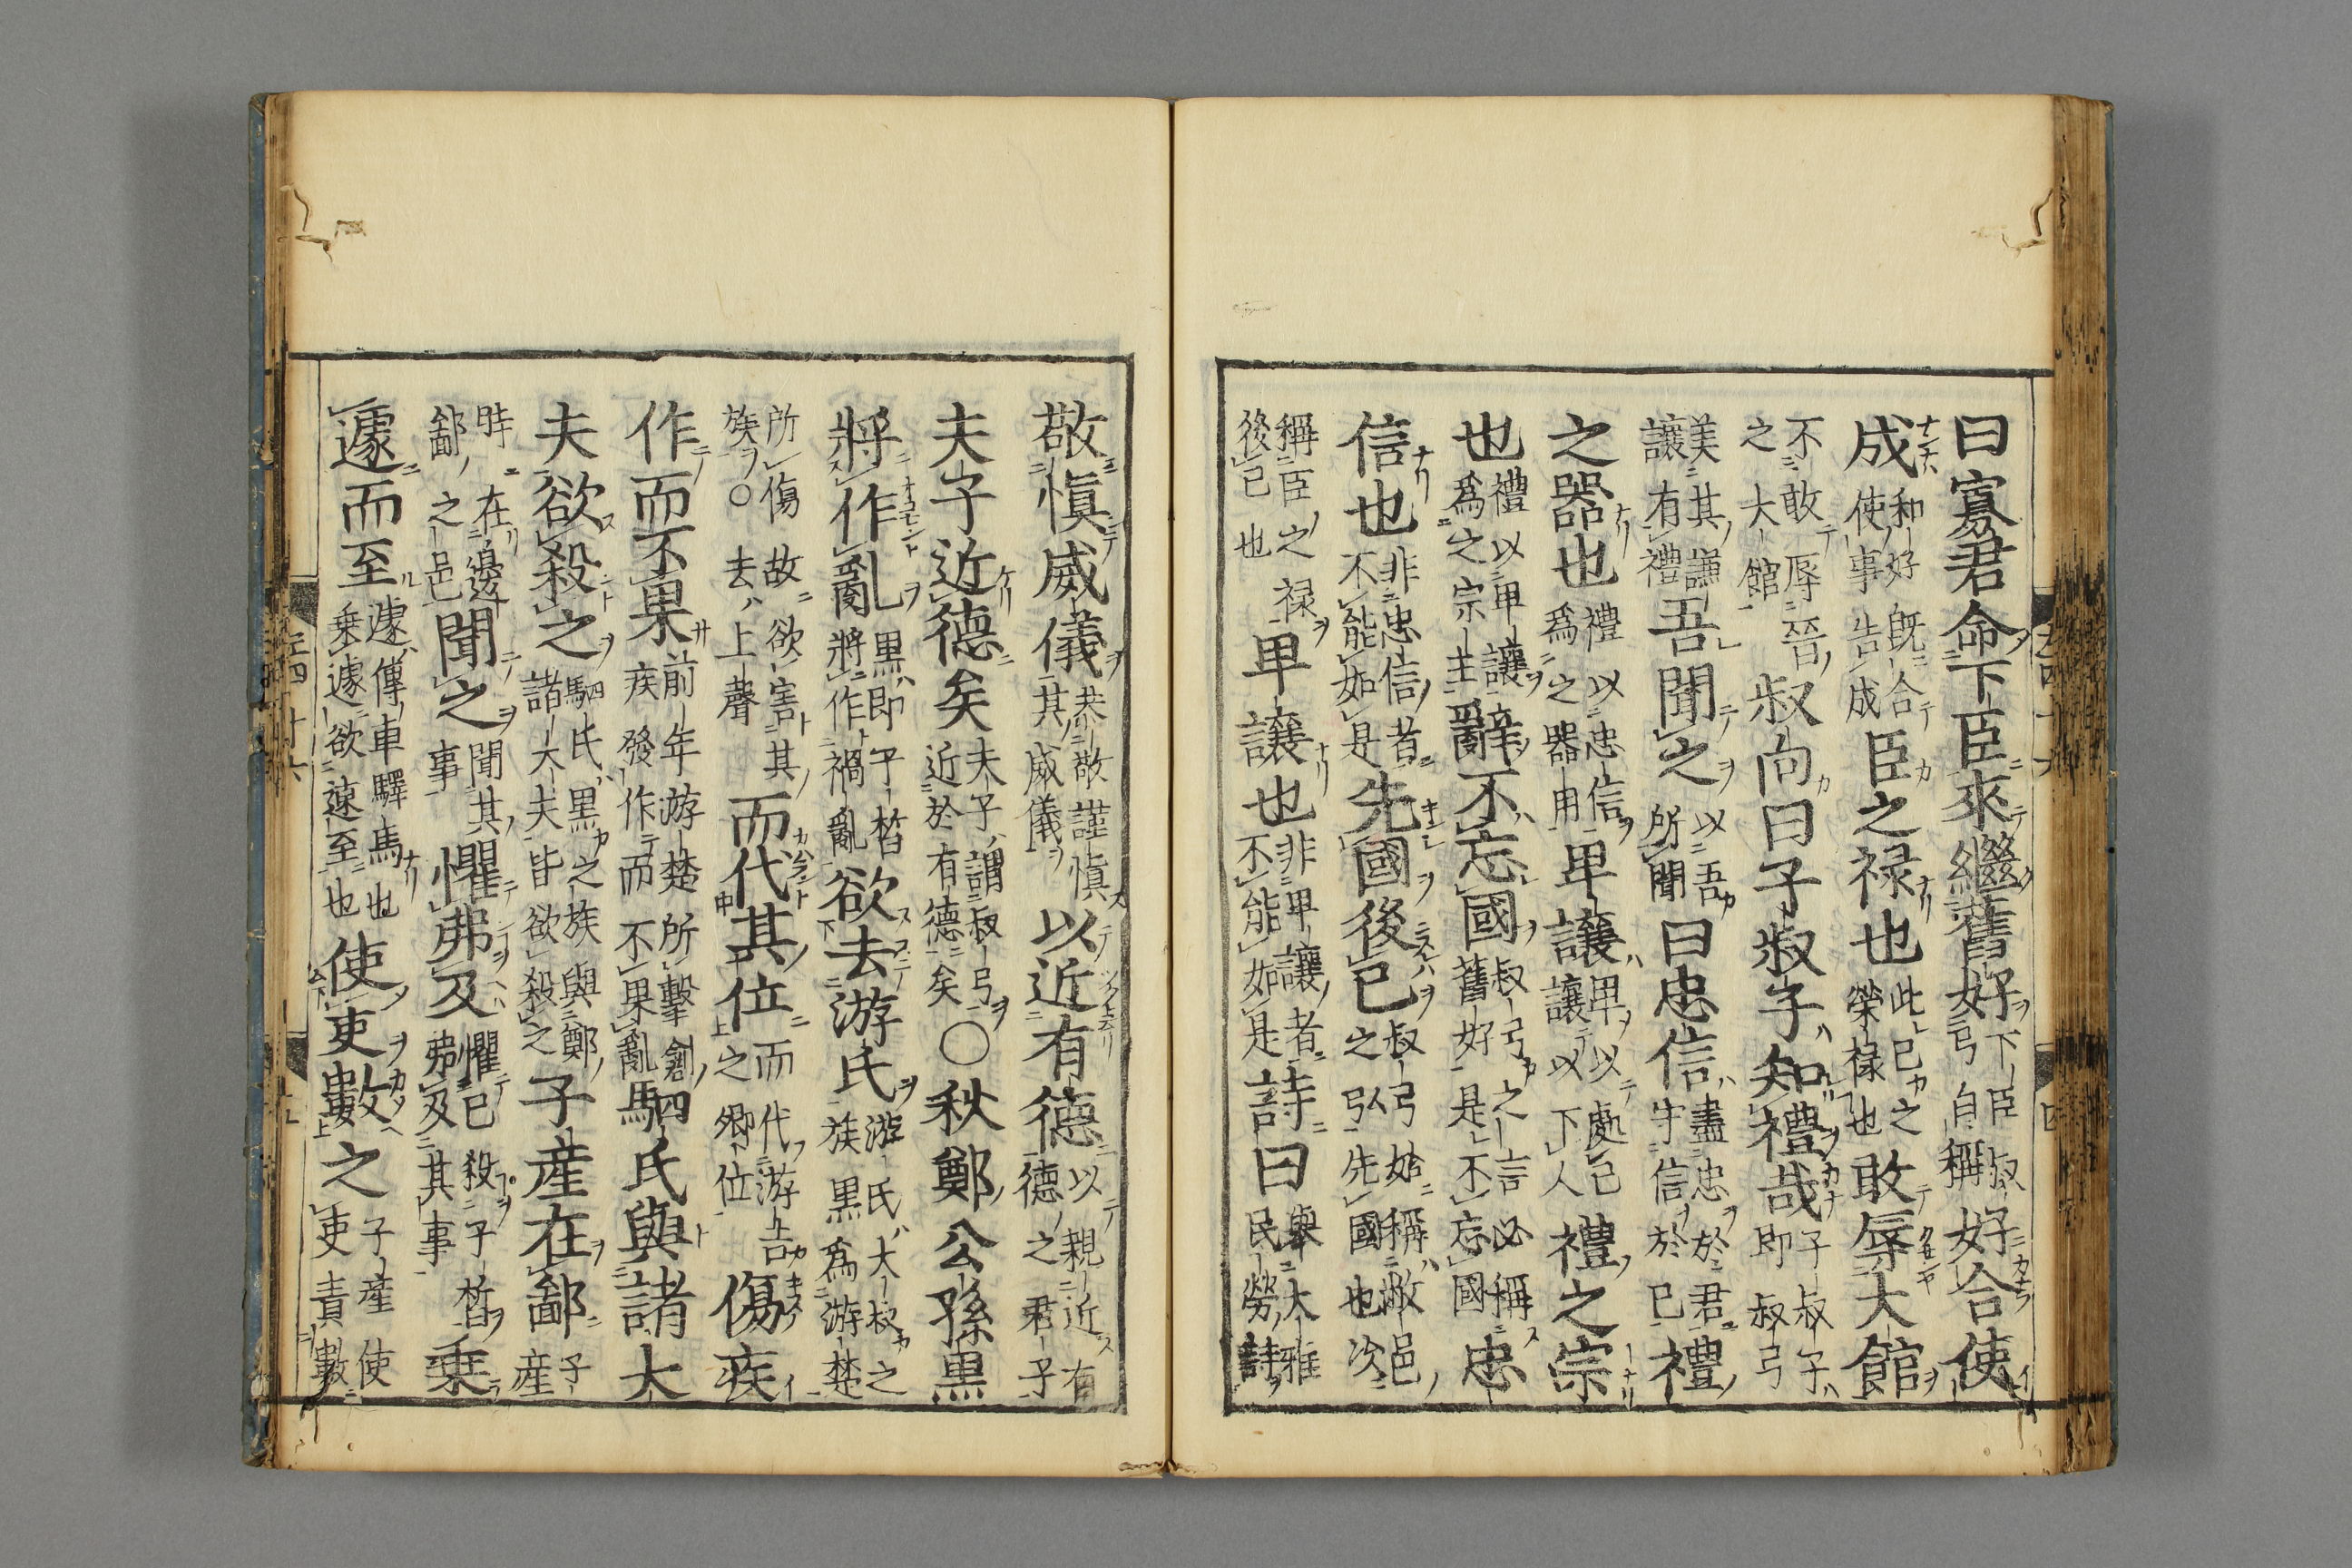 曰寡君命下臣來繼舊好下臣叔弓自稱好合使
成和好既合使事告成臣之禄也此己之榮禄也敢辱大館
不敢辱晉之大館叔向曰子叔子知禮哉子叔子即叔弓
美其謙讓有禮吾聞之以吾所聞曰忠信盡忠於君守信於己禮
之器也禮以忠信爲之器用卑讓卑以處己讓以下人禮之宗
也禮以卑讓爲之宗主辭不忘國叔弓之言必稱舊好是不忘國忠
信也非忠信者不能如是先國後己叔弓始稱敝邑之弘先國也次
稱臣之禄後己也卑讓也非卑讓者不能如是詩曰擧大雅民勞詩
敬愼威儀恭敬謹愼其威儀以近有德以親近有德之君子
夫子近德矣夫子謂叔弓近於有德矣○秋鄭公孫黑
將作亂黑即子晳將作禍亂欲去游氏游氏大叔之族黑爲游楚
所傷故欲害其族○去上聲而代其位而代游吉之卿位傷疾
作而不果前年游楚所擊創疾發作而不果亂駟氏與諸大
夫欲殺之駟氏黑之族與鄭諸大夫皆欲殺之子産在鄙子産
時在邊鄙之邑聞之聞其事懼弗及懼已殺子晳弗及其事乗
遽而至遽傳車驛馬也乗遽欲速至也使吏數之子産使吏責數